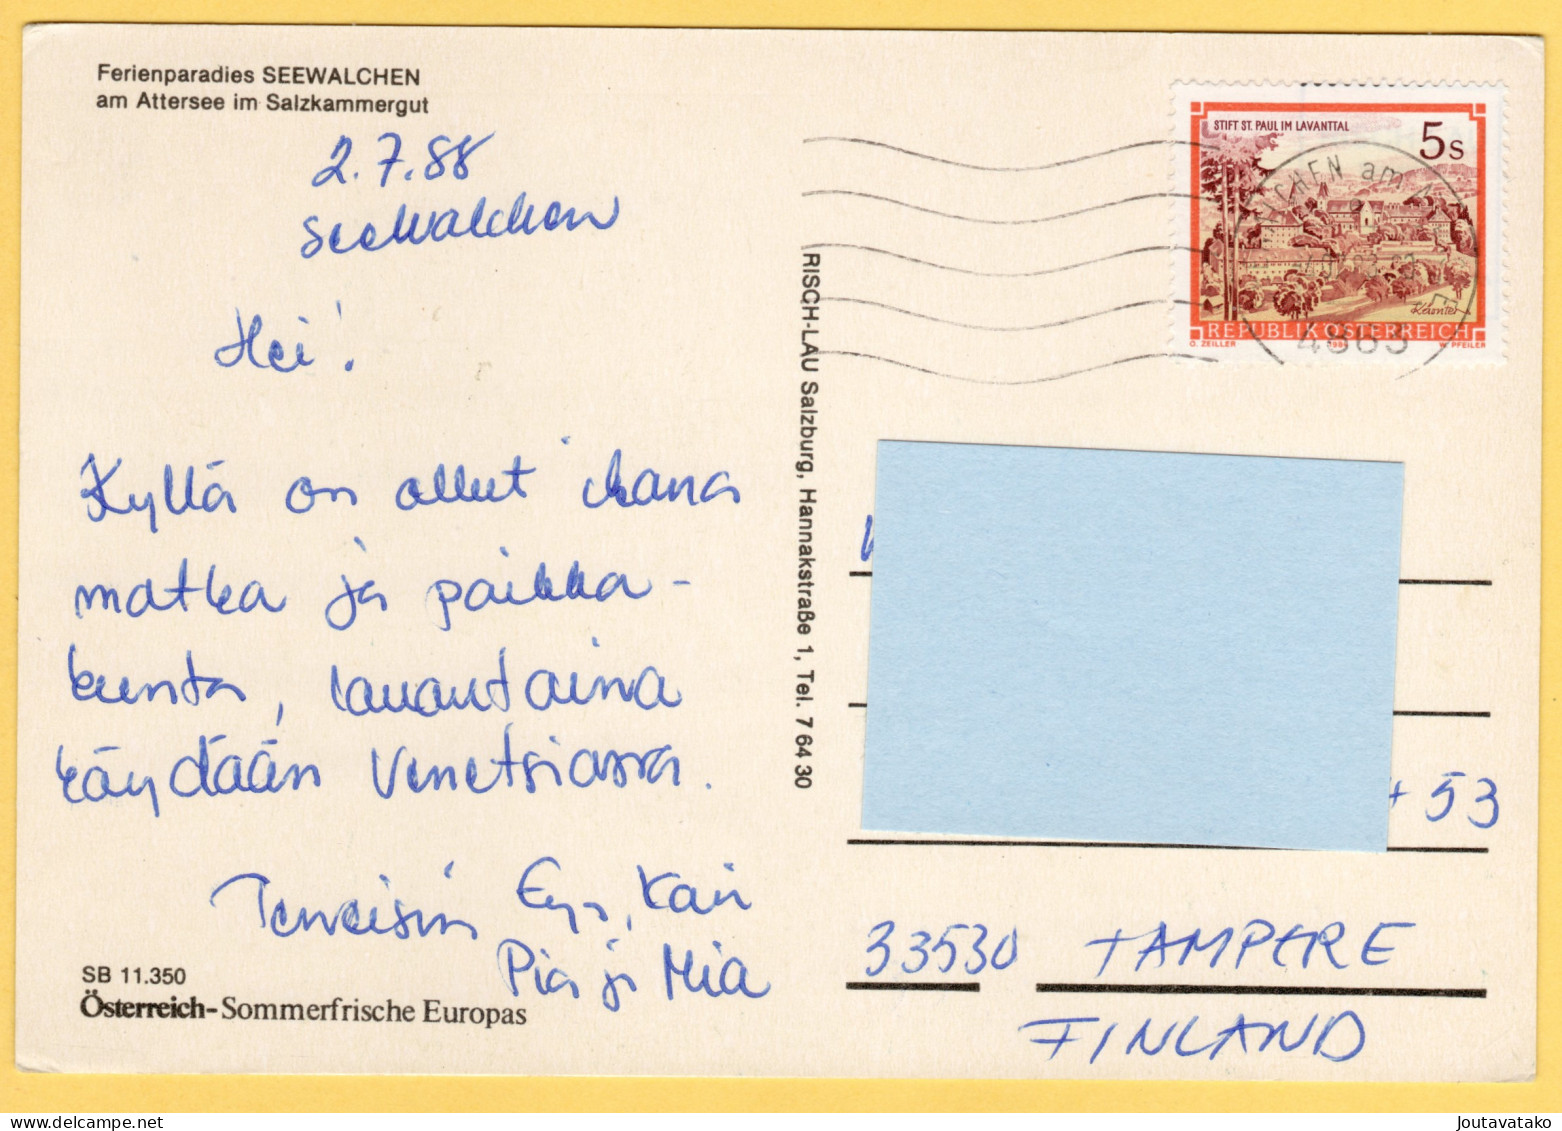 Ferienparadies SEEWALCHEN
am Attersee im Salzkammergut
2.7.88
Seewalchen
Hei!
Kyllä on ollut ihana
matka ja paikka-
kunta, lauantaina
käydään Venetsiassa.
Terveisin Eija, Kari
Pia ja Mia
SB 11.350
Österreich-Sommerfrische Europas
RISCH-LAU Salzburg, Hannakstraße 1, Tel. 7 64 30
STIFT ST. PAUL IM LAVANTTAL
5s
Kärnten
REPUBLIK ÖSTERREICH
O. ZEILLER W. PFEILER
CHEN am
4863
53
33530 TAMPERE
FINLAND
delcampe.net
joutavatako